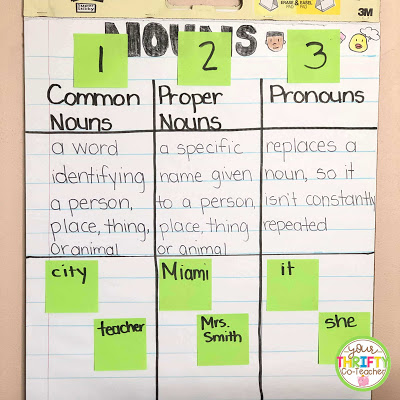 3M
NOUNS
1
2
3
Common
Nouns
Proper
Nouns
Pronouns
a word
identifying
a person,
place, thing,
or animal
a specific
name given
to a person,
place, thing
or animal
replaces a
noun, so it
isn't constantly
repeated
city
teacher
Miami
Mrs.
Smith
it
she
your
THRIFTY
Co-Teacher